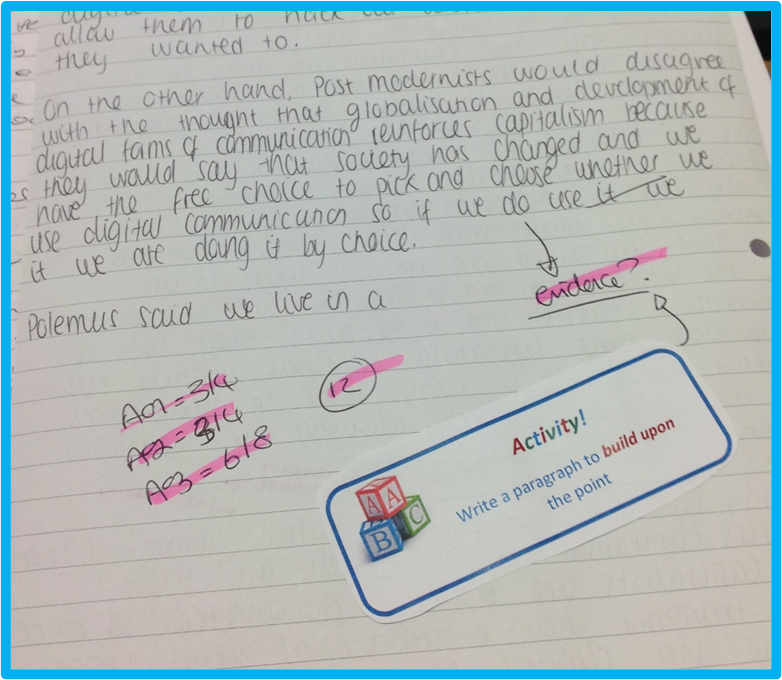 allow them to hack
they wanted to.
On the other hand, Post modernists would disagree
with the thought that globalisation and development of
digital forms of communication reinforces capitalism because
they would say that society has changed and we
have the free choice to pick and choose whether we
use digital communication so if we do use it we
it we are doing it by choice.
evidence?
Polemus said we live in a
12
AO1 = 3/4
AO2 = 3/4
AO3 = 6/8
Activity!
Write a paragraph to build upon
the point
A A
B C